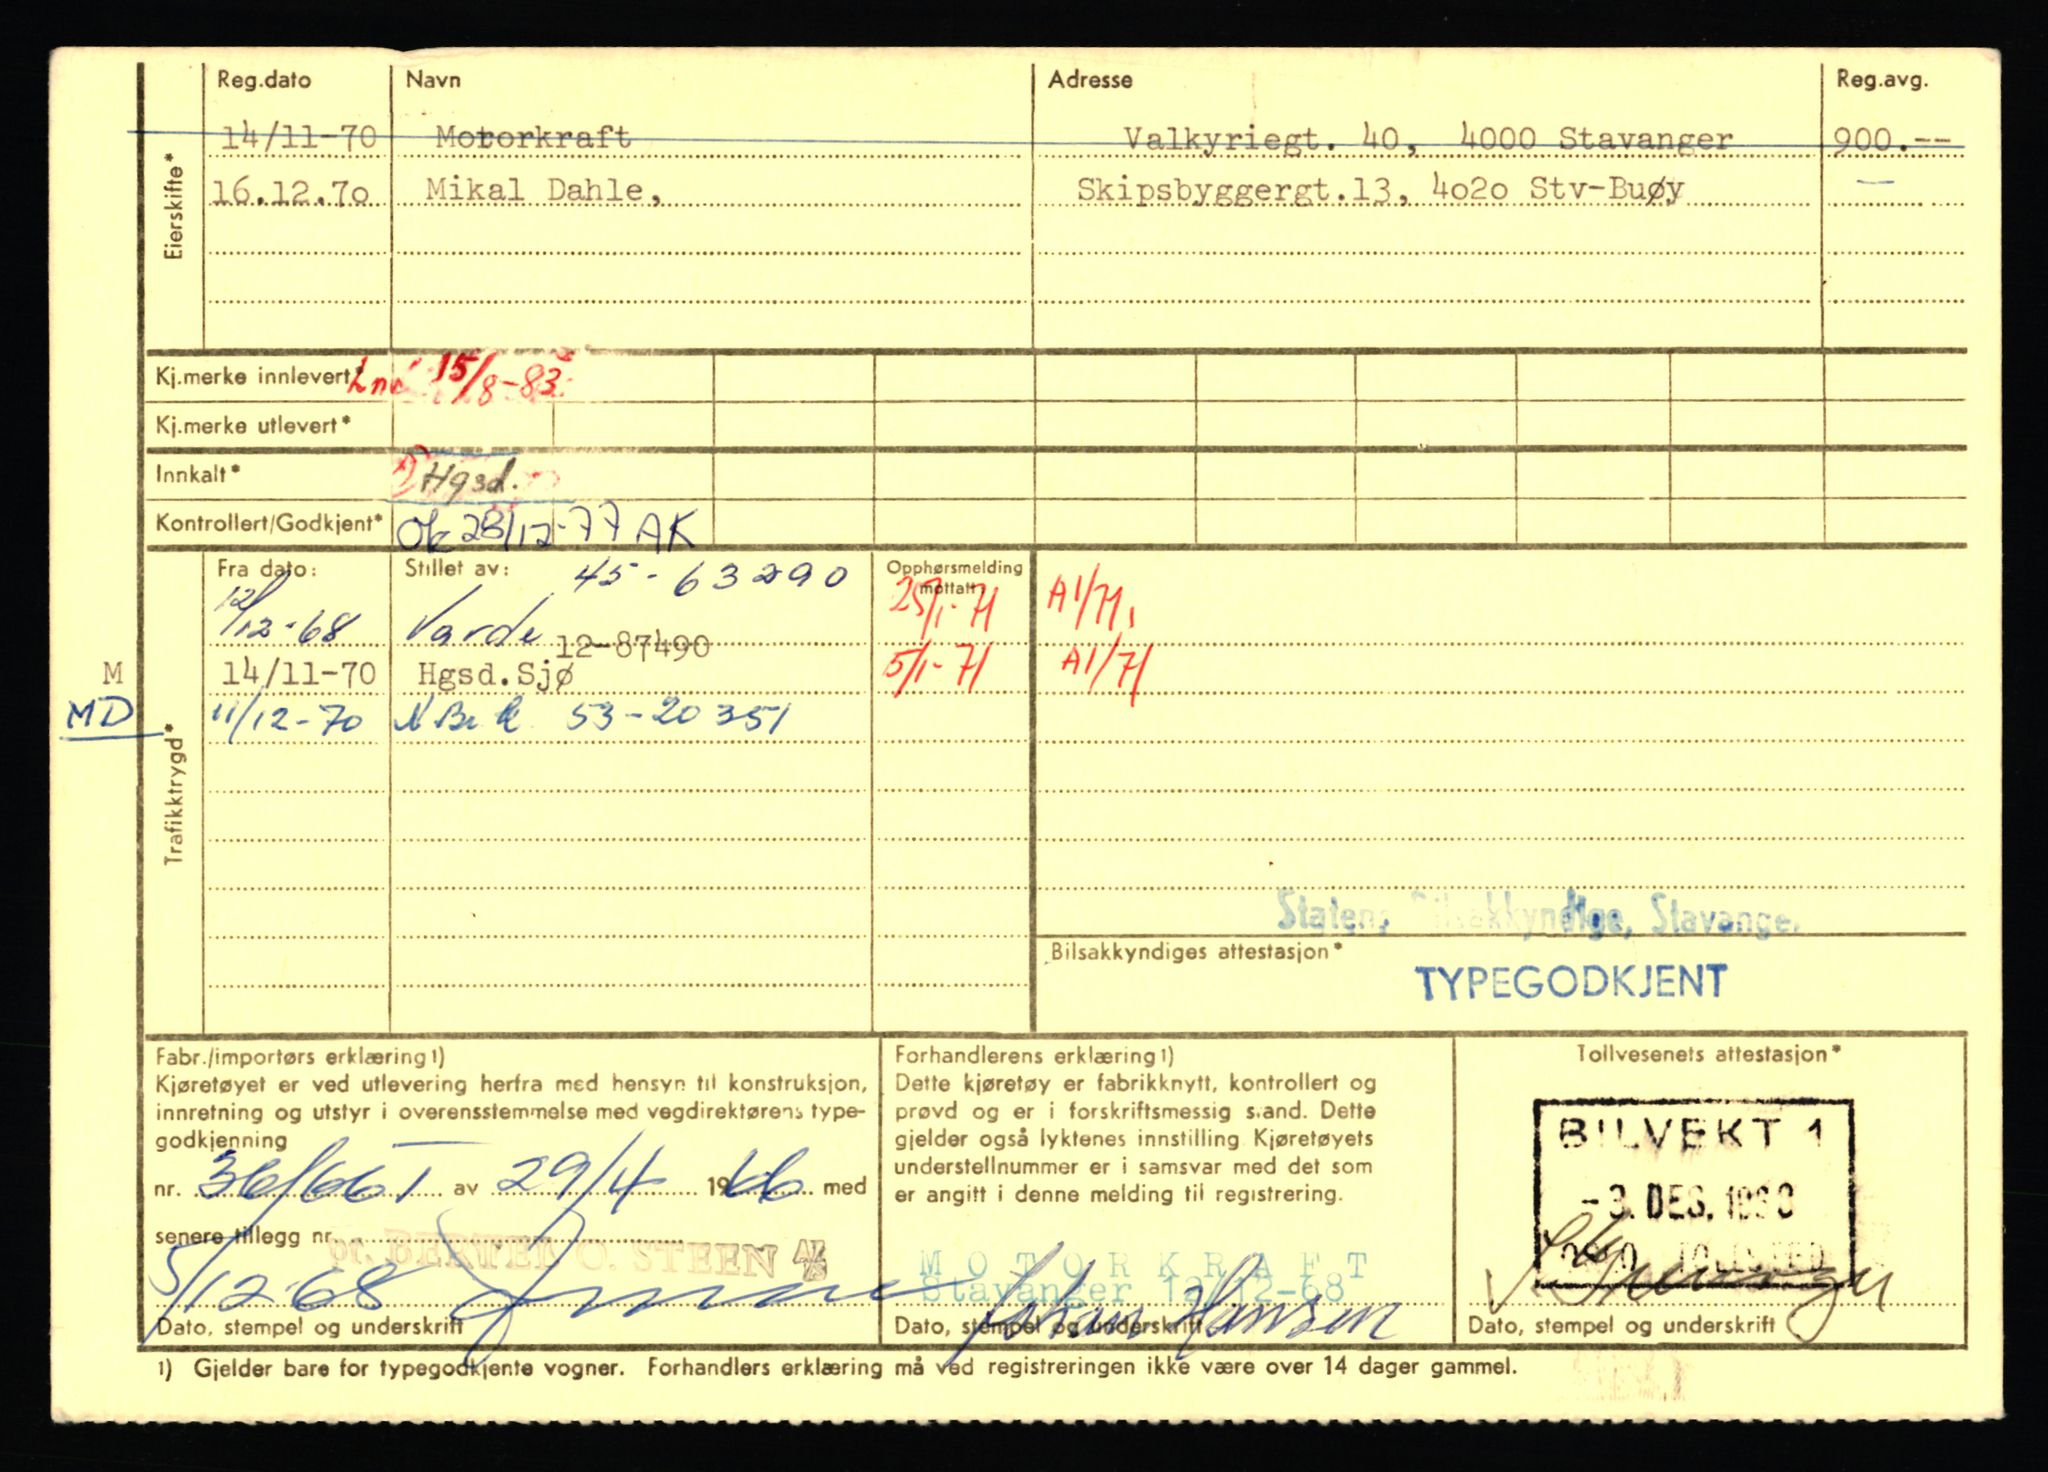 Reg.dato Navn Adresse Reg.avg.
Eierskifte*
14/11-70 Motorkraft Valkyriegt. 40, 4000 Stavanger 900.--
16.12.70 Mikal Dahle, Skipsbyggergt.13, 4020 Stv-Buøy —
Kj.merke innlevert* 15/8-83
Kj.merke utlevert*
Innkalt* Hgsd.
Kontrollert/Godkjent* Ok 28/12-77 AK
Trafikktrygd*
Fra dato: Stillet av: 45-63290 Opphørsmelding mottatt
12/12-68 Varde 25/1-71 A1/71,
12-87490
M 14/11-70 Hgsd.Sjø 5/1-71 A1/71
MD 11/12-70 53-20351
Statens Bilsakkyndige, Stavanger
Bilsakkyndiges attestasjon*
TYPEGODKJENT
Fabr./importørs erklæring 1)
Kjøretøyet er ved utlevering herfra med hensyn til konstruksjon,
innretning og utstyr i overensstemmelse med vegdirektørens type-
godkjenning
nr. 36/66 I av 29/4 1966 med
senere tillegg nr.
pr. BERTEL O. STEEN A/S
5/12-68
Dato, stempel og underskrift
Forhandlerens erklæring 1)
Dette kjøretøy er fabrikknytt, kontrollert og
prøvd og er i forskriftsmessig stand. Dette
gjelder også lyktenes innstilling Kjøretøyets
understellnummer er i samsvar med det som
er angitt i denne melding til registrering.
MOTORKRAFT
Stavanger 12/12-68
Johan Hansen
Dato, stempel og underskrift
Tollvesenets attestasjon*
BILVEKT 1
-3. DES. 1968
Dato, stempel og underskrift
1) Gjelder bare for typegodkjente vogner. Forhandlers erklæring må ved registreringen ikke være over 14 dager gammel.